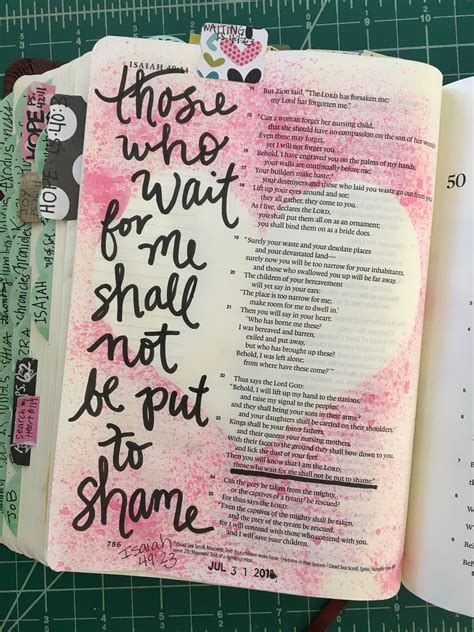 WAITING
IS. 49:23
ISAIAH 49:14
those
who
wait
for me
shall
not
be put
to
shame
Isaiah
49:23
786
JUL 31 2018
14 But Zion said, "The LORD has forsaken me;
my Lord has forgotten me."
15 "Can a woman forget her nursing child,
that she should have no compassion on the son of her womb?
Even these may forget,
yet I will not forget you.
16 Behold, I have engraved you on the palms of my hands;
your walls are continually before me.
17 Your builders make haste;
your destroyers and those who laid you waste go out from you.
18 Lift up your eyes around and see;
they all gather, they come to you.
As I live, declares the LORD,
you shall put them all on as an ornament;
you shall bind them on as a bride does.
19 "Surely your waste and your desolate places
and your devastated land—
surely now you will be too narrow for your inhabitants,
and those who swallowed you up will be far away.
20 The children of your bereavement
will yet say in your ears:
'The place is too narrow for me;
make room for me to dwell in.'
21 Then you will say in your heart:
'Who has borne me these?
I was bereaved and barren,
exiled and put away,
but who has brought up these?
Behold, I was left alone;
from where have these come?'"
22 Thus says the Lord GOD:
"Behold, I will lift up my hand to the nations,
and raise my signal to the peoples;
and they shall bring your sons in their arms,
and your daughters shall be carried on their shoulders.
23 Kings shall be your foster fathers,
and their queens your nursing mothers.
With their faces to the ground they shall bow down to you,
and lick the dust of your feet.
Then you will know that I am the LORD;
those who wait for me shall not be put to shame."
24 Can the prey be taken from the mighty,
or the captives of a tyrant be rescued?
25 For thus says the LORD:
"Even the captives of the mighty shall be taken,
and the prey of the tyrant be rescued,
for I will contend with those who contend with you,
and I will save your children.
50
HOPE
PS. 42:11
HOPE PS. 40:
ISAIAH
EZRA
Search my
Heart
JOB